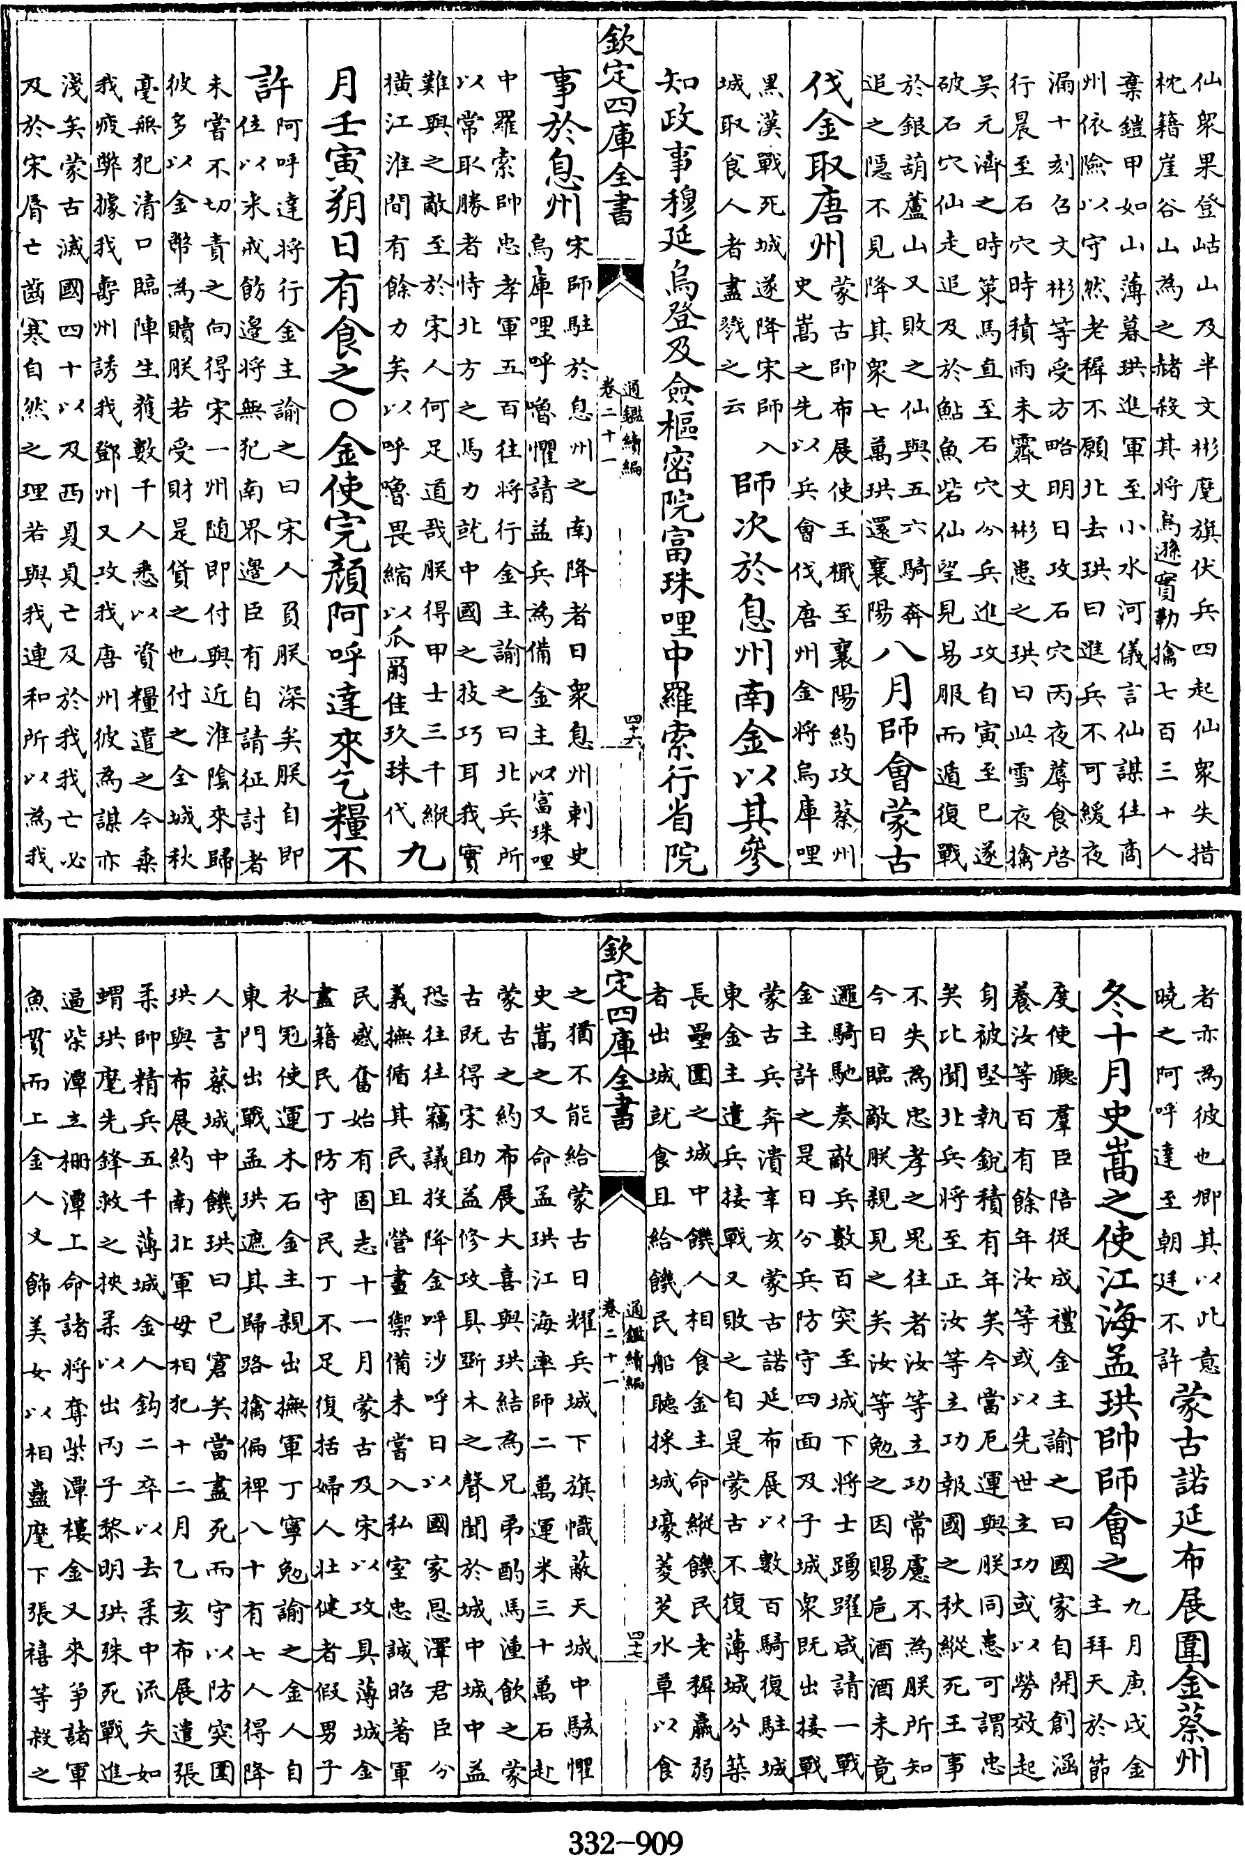 仙衆果登岵山及半文彬麾旗伏兵四起仙衆失措
枕籍崖谷山為之赭殺其將烏遜實勒擒七百三十人
棄鎧甲如山薄暮珙進軍至小水河儀言仙謀往商
州依險以守然老穉不願北去珙曰進兵不可緩夜
漏十刻召文彬等受方略明日攻石穴丙夜蓐食啓
行晨至石穴時積雨未霽文彬患之珙曰此雪夜擒
吳元濟之時策馬直至石穴分兵進攻自寅至巳遂
破石穴仙走追及於鮎魚砦仙望見易服而遁復戰
於銀葫蘆山又敗之仙與五六騎奔
追之隱不見降其衆七萬珙還襄陽
八月師會蒙古
伐金取唐州
蒙古帥布展使王檝至襄陽約攻蔡州
史嵩之先以兵會伐唐州金將烏庫哩
黑漢戰死城遂降宋師入
城取食人者盡戮之云
師次於息州南金以其參
知政事穆延烏登及僉樞密院富珠哩中羅索行省院
欽定四庫全書
通鑑續編
卷二十一
四十六
事於息州
宋師駐於息州之南降者日衆息州刺史
烏庫哩呼嚕懼請益兵為備金主以富珠哩
中羅索帥忠孝軍五百往將行金主諭之曰北兵所
以常取勝者恃北方之馬力就中國之技巧耳我實
難與之敵至於宋人何足道哉朕得甲士三千縱
橫江淮間有餘力矣以呼嚕畏縮以爪爾佳玖珠代
九
月壬寅朔日有食之〇金使完顏阿呼達來乞糧不
許
阿呼達將行金主諭之曰宋人負朕深矣朕自即
位以來戒飭邊將無犯南界邊臣有自請征討者
未嘗不切責之向得宋一州隨即付與近淮陰來歸
彼多以金幣為贖朕若受財是貨之也付之全城秋
毫無犯清口臨陣生獲數千人悉以資糧遣之今乗
我疲弊據我壽州誘我鄧州又攻我唐州彼為謀亦
淺矣蒙古滅國四十以及西夏夏亡及於我我亡必
及於宋脣亡齒寒自然之理若與我連和所以為我
者亦為彼也卿其以此意
曉之阿呼達至朝廷不許
蒙古諾延布展圍金蔡州
冬十月史嵩之使江海孟珙帥師會之
九月庚戌金
主拜天於節
度使廳羣臣陪從成禮金主諭之曰國家自開創涵
養汝等百有餘年汝等或以先世主功或以勞效起
身被堅執銳積有年矣今當厄運與朕同患可謂忠
矣比聞北兵將至正汝等立功報國之秋縱死王事
不失為忠孝之鬼往者汝等立功常慮不為朕所知
今日臨敵朕親見之矣汝等勉之因賜巵酒酒未竟
邏騎馳奏敵兵數百突至城下將士踴躍咸請一戰
金主許之是日分兵防守四面及子城衆既出接戰
蒙古兵奔潰辛亥蒙古諾延布展以數百騎復駐城
東金主遣兵接戰又敗之自是蒙古不復薄城分築
長壘圍之城中饑人相食金主命縱饑民老穉羸弱
者出城就食且給饑民船聽採城壕菱芡水草以食
欽定四庫全書
通鑑續編
卷二十一
四十七
之猶不能給蒙古日耀兵城下旗幟蔽天城中駭懼
史嵩之又命孟珙江海率師二萬運米三十萬石赴
蒙古之約布展大喜與珙結為兄弟酌馬湩飲之蒙
古既得宋助益修攻具斲木之聲聞於城中城中益
恐往往竊議投降金呼沙呼日以國家恩澤君臣分
義撫循其民且營畫禦備未嘗入私室忠誠昭著軍
民感奮始有固志十一月蒙古及宋以攻具薄城金
盡籍民丁防守民丁不足復括婦人壯健者假男子
衣冠使運木石金主親出撫軍丁寧勉諭之金人自
東門出戰孟珙遮其歸路擒偏裨八十有七人得降
人言蔡城中饑珙曰已窘矣當盡死而守以防突圍
珙與布展約南北軍毋相犯十二月乙亥布展遣張
柔帥精兵五千薄城金人鈎二卒以去柔中流矢如
蝟珙麾先鋒救之挾柔以出丙子黎明珙殊死戰進
逼柴潭立柵潭上命諸將奪柴潭樓金又來爭諸軍
魚貫而上金人又飾美女以相蠱麾下張禧等殺之
332-909